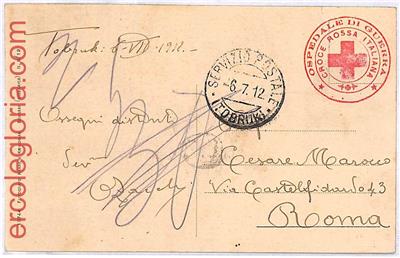 ercolegloria.com
Tobruk: 6 VII 1912.
SERVIZIO POSTALE
-6.7.12
(TOBRUK)
OSPEDALE DI GUERRA
CROCE ROSSA ITALIANA
Ossequi distinti
Cesare Marocco
Via Castelfidardo 43
Roma